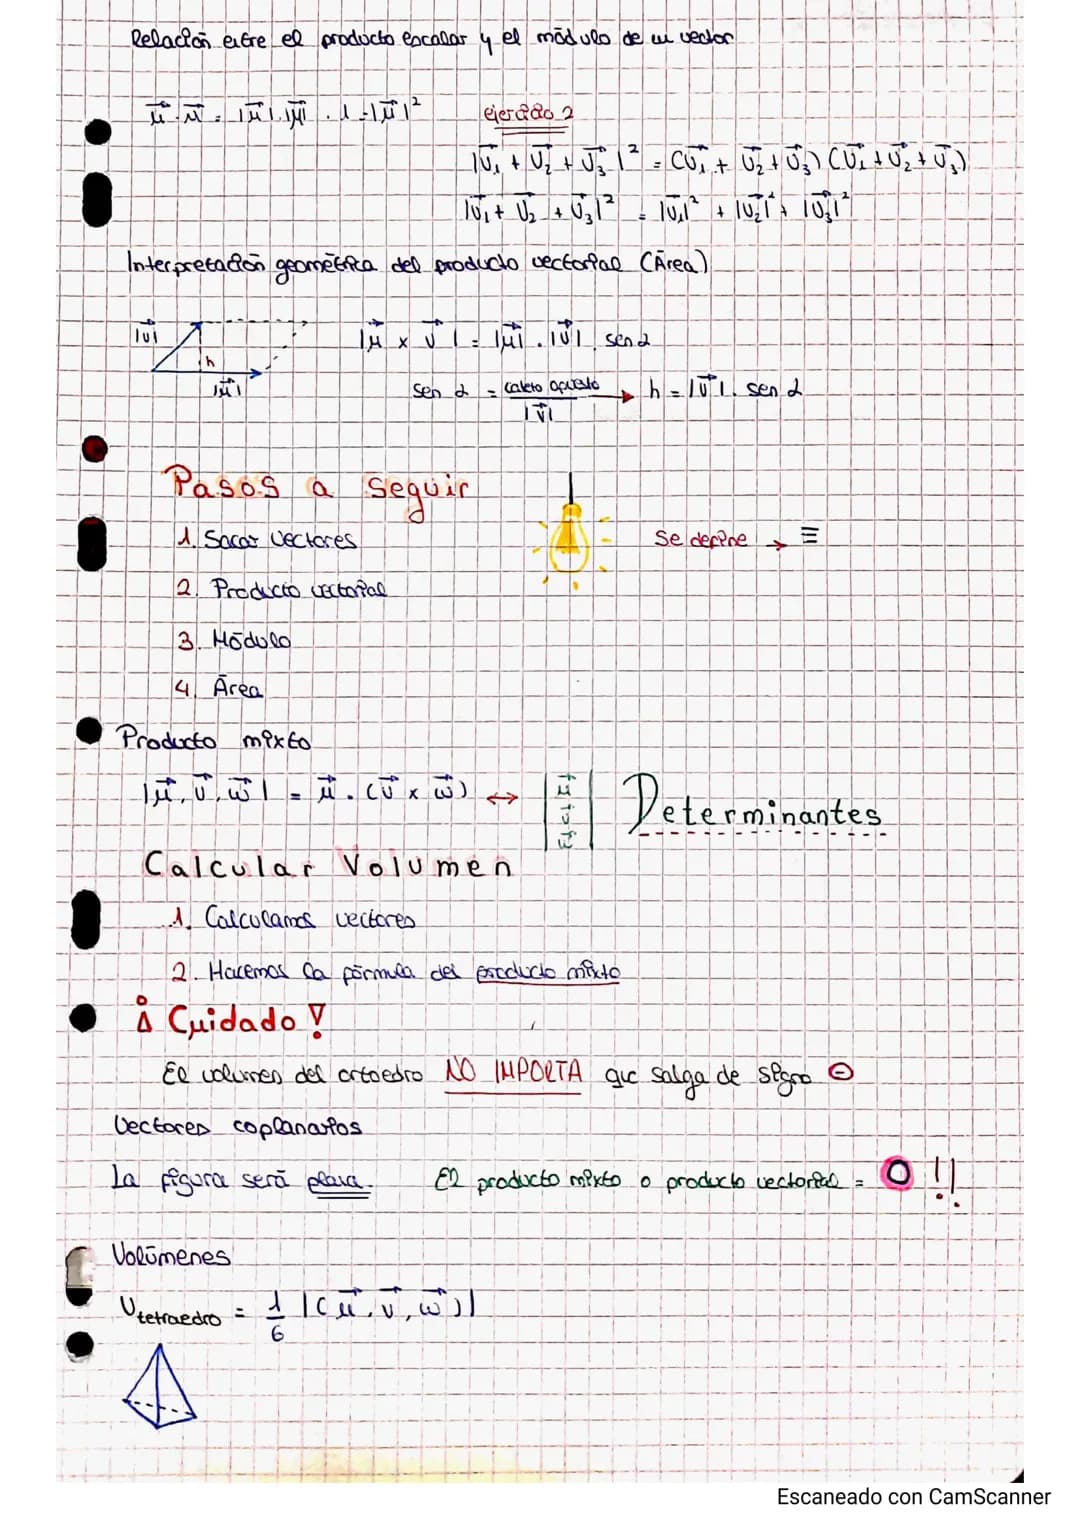 Relación entre el producto escalar y el módulo de un vector
μ⃗ · μ⃗ = |μ⃗| · |μ⃗| · 1 = |μ⃗|²
ejercicio 2
|v⃗₁ + v⃗₂ + v⃗₃|² = (v⃗₁ + v⃗₂ + v⃗₃) (v⃗₁ + v⃗₂ + v⃗₃)
|v⃗₁ + v⃗₂ + v⃗₃|² = |v⃗₁|² + |v⃗₂|² + |v⃗₃|²
Interpretación geométrica del producto vectorial (Área)
|v⃗|
h
|μ⃗|
|μ⃗ x v⃗| = |μ⃗| · |v⃗| · sen α
sen α = cateto opuesto / |v⃗| → h = |v⃗| · sen α
Pasos a seguir
1. Sacar vectores
2. Producto vectorial
3. Módulo
4. Área
Se define → ≡
Producto mixto
|μ⃗, v⃗, w⃗| = μ⃗ · (v⃗ x w⃗) ↔ |μ⃗ v⃗ w⃗| Determinantes
Calcular Volumen
1. Calculamos vectores
2. Hacemos la fórmula del producto mixto
¡Cuidado!
El volumen del ortoedro NO IMPORTA que salga de signo ⊖
Vectores coplanarios
La figura será plana. El producto mixto o producto vectorial = 0 !!
Volúmenes
V tetraedro = 1/6 |(μ⃗, v⃗, w⃗)|
Escaneado con CamScanner